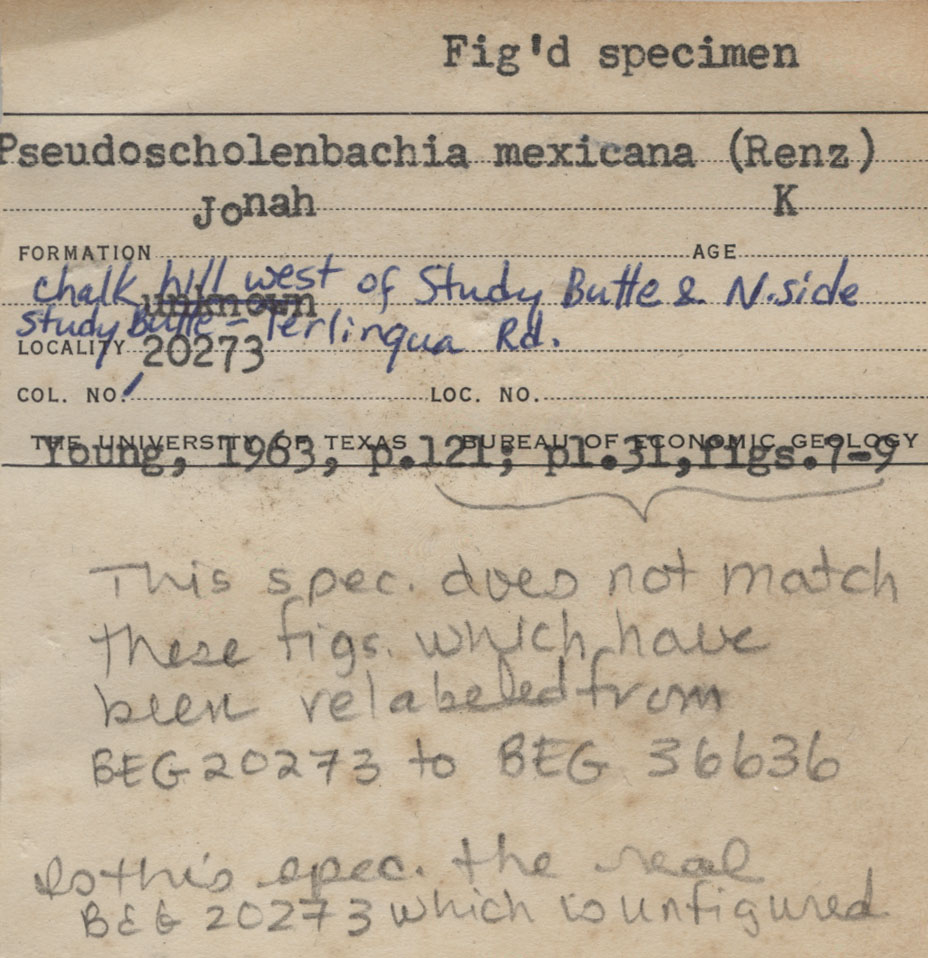 Fig'd specimen
Pseudoscholenbachia mexicana (Renz)
Jonah K
FORMATION AGE
chalk hill west of Study Butte & N.side
unknown
Study Butte - Terlinqua Rd.
LOCALITY 20273
COL. NO. LOC. NO.
THE UNIVERSITY OF TEXAS BUREAU OF ECONOMIC GEOLOGY
Young, 1963, p.121; pl.31,figs.7-9
This spec. does not match
these figs. which have
been relabeled from
BEG 20273 to BEG 36636
Is this spec. the real
BEG 20273 which is unfigured